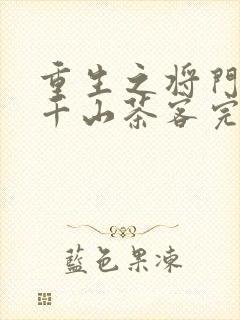 重生之将門
千山茶客完
藍色果凍